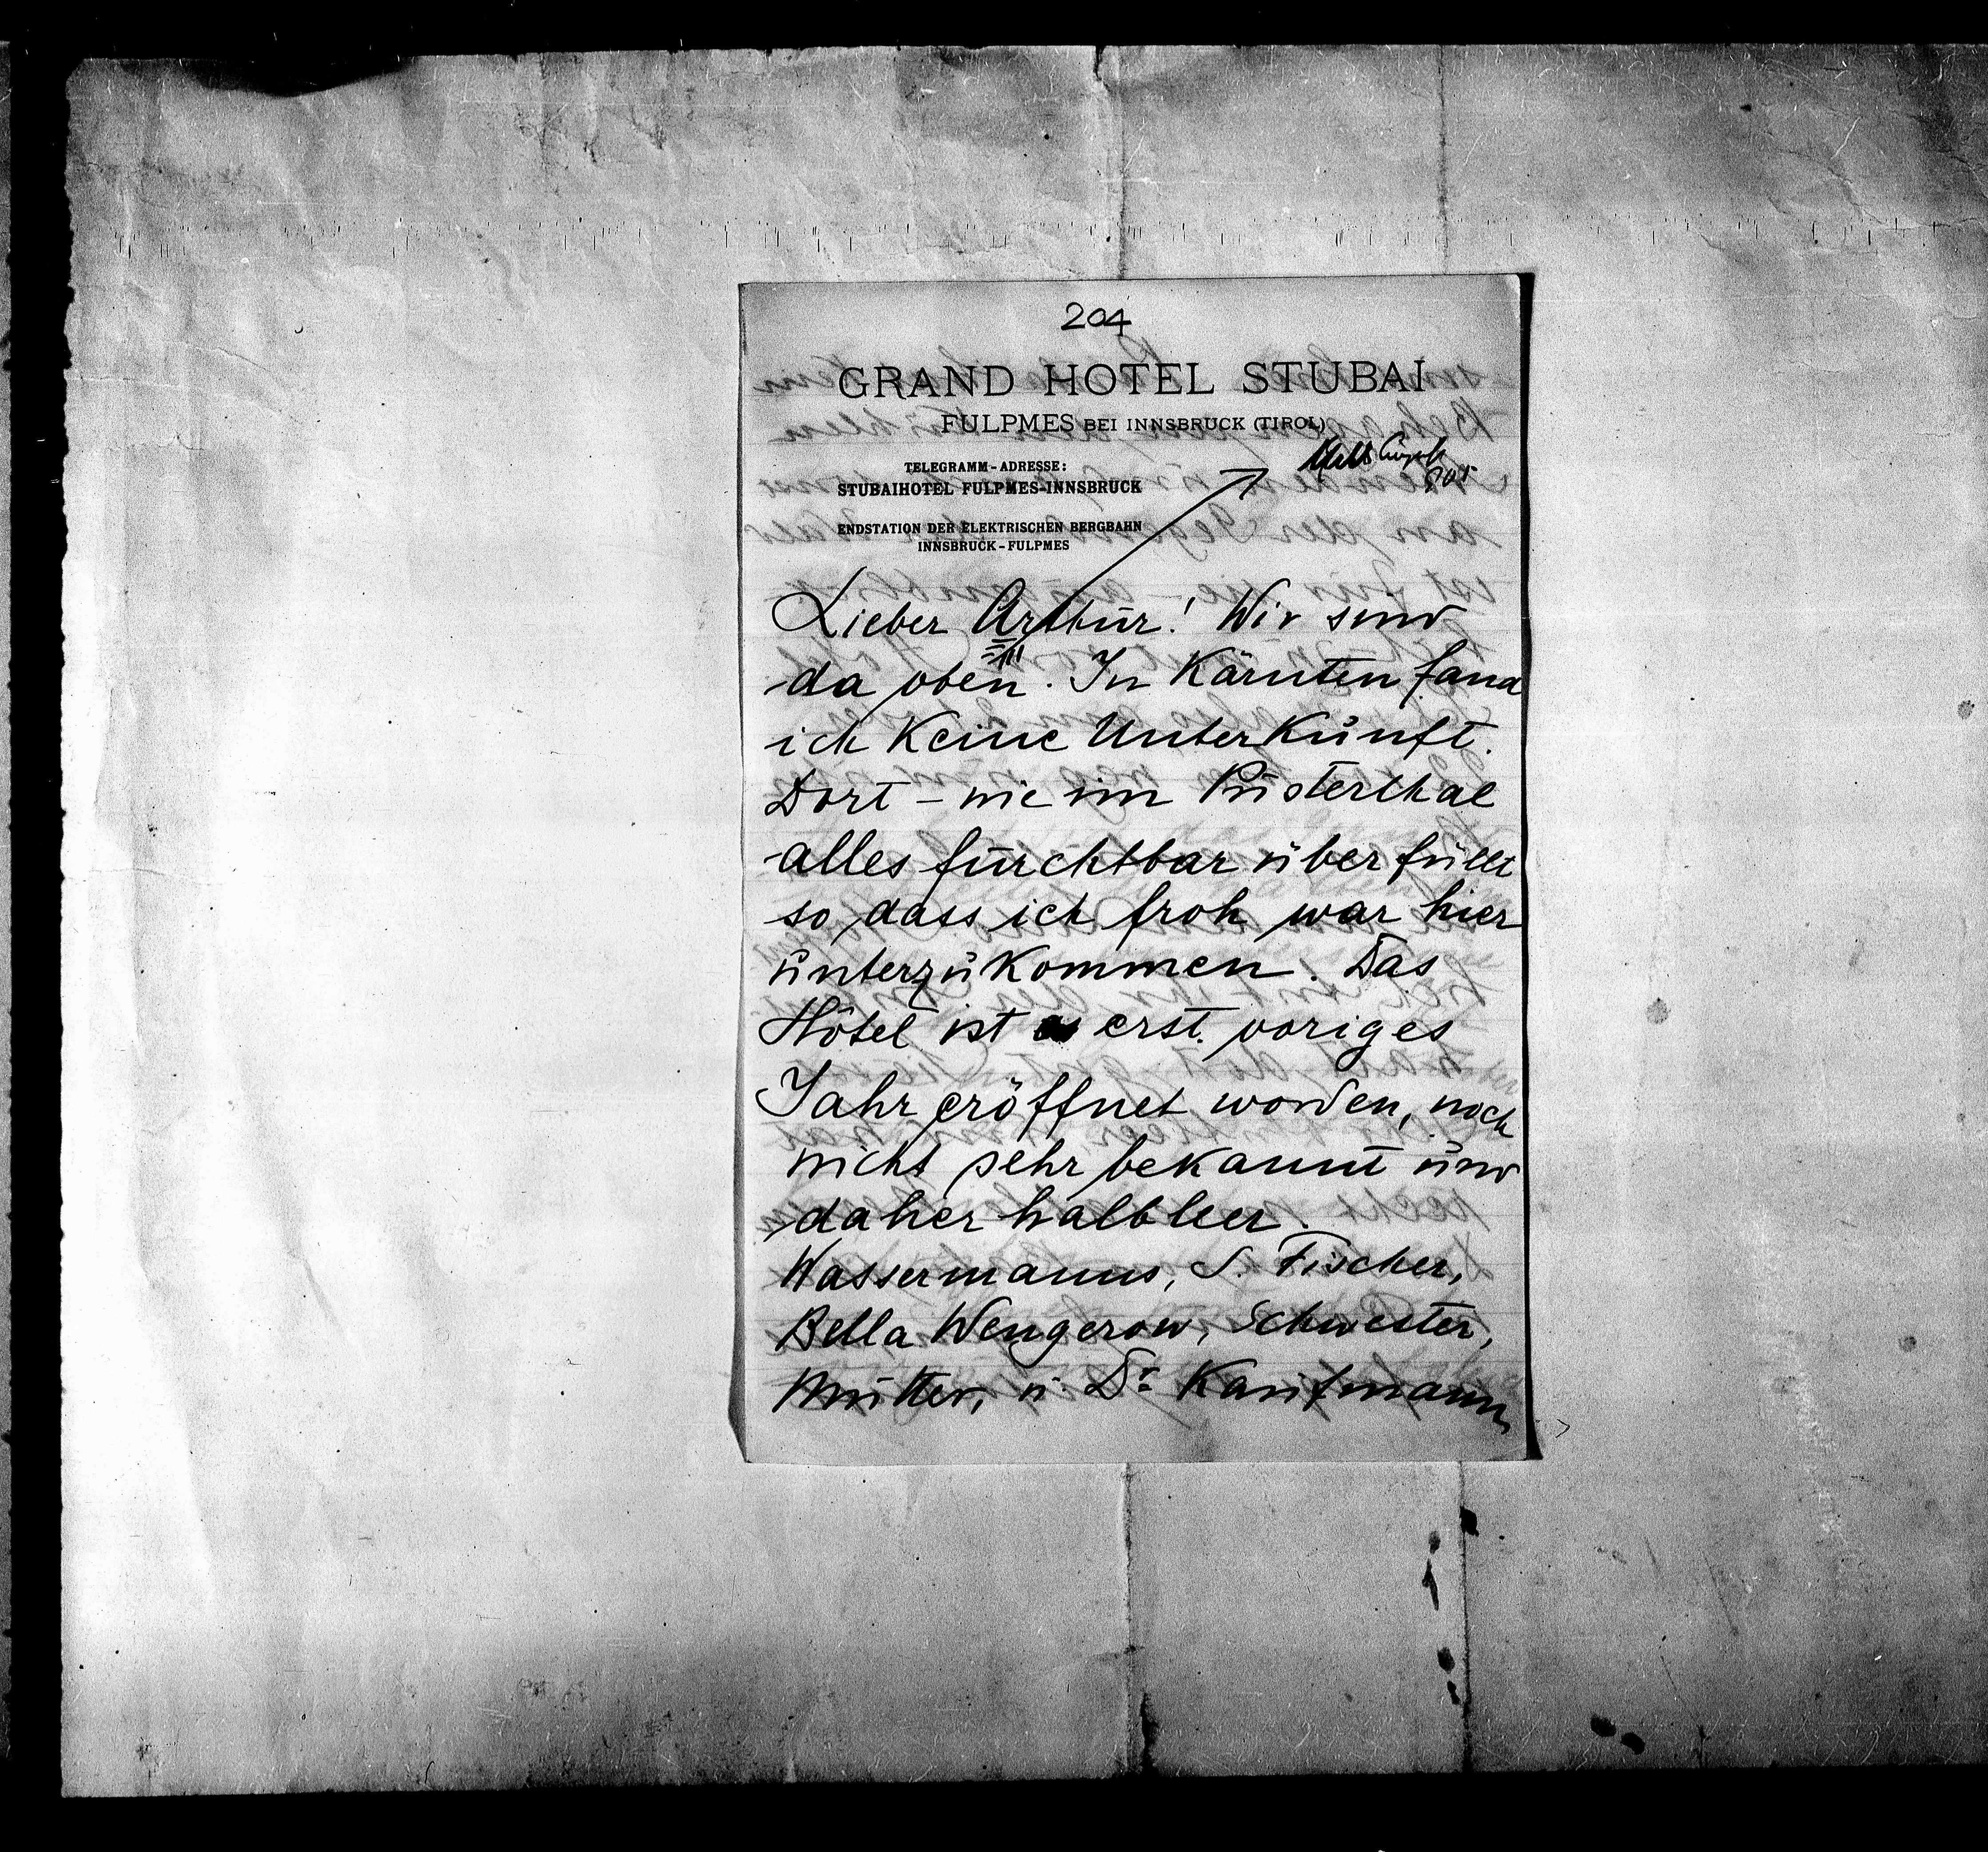 204
GRAND HOTEL STUBAI
FULPMES BEI INNSBRUCK (TIROL)
TELEGRAMM-ADRESSE:
STUBAIHOTEL FULPMES-INNSBRUCK
ENDSTATION DER ELEKTRISCHEN BERGBAHN
INNSBRUCK-FULPMES
August
905
Lieber Arthur! Wir sind
da oben. In Kärnten fand
ich keine Unterkunft.
Dort – wie im Pusterthal
alles furchtbar überfüllt
so dass ich froh war hier
unterzukommen. Das
Hôtel ist erst voriges
Jahr eröffnet worden, noch
nicht sehr bekannt und
daher halbleer.
Wassermanns, S. Fischer,
Bella Wengerow, Schwester,
Mutter, u. Dr Kaufmann,